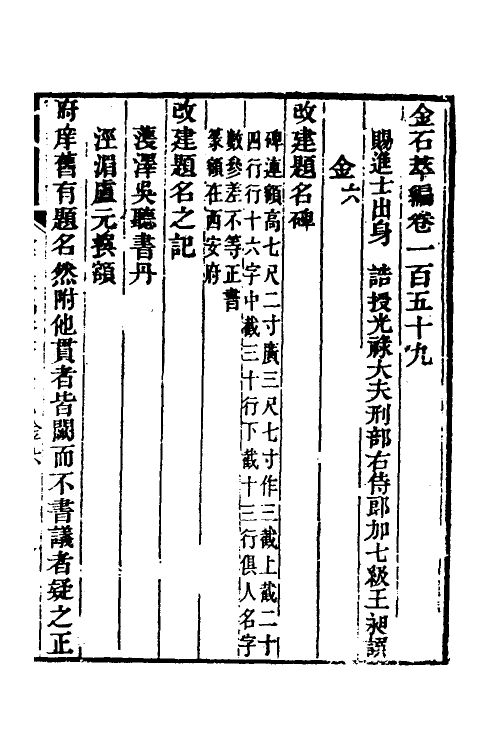 金石萃編卷一百五十九
賜進士出身　誥授光祿大夫刑部右侍郎加七級王昶譔
金六
改建題名碑
碑連額高七尺二寸廣三尺七寸作三截上截二十
四行行十六字中截三十行下截十三行俱人名字
數參差不等正書
篆額在西安府
改建題名之記
濩澤吳聽書丹
涇湄盧元撰額
府庠舊有題名然附他貫者皆闕而不書議者疑之正